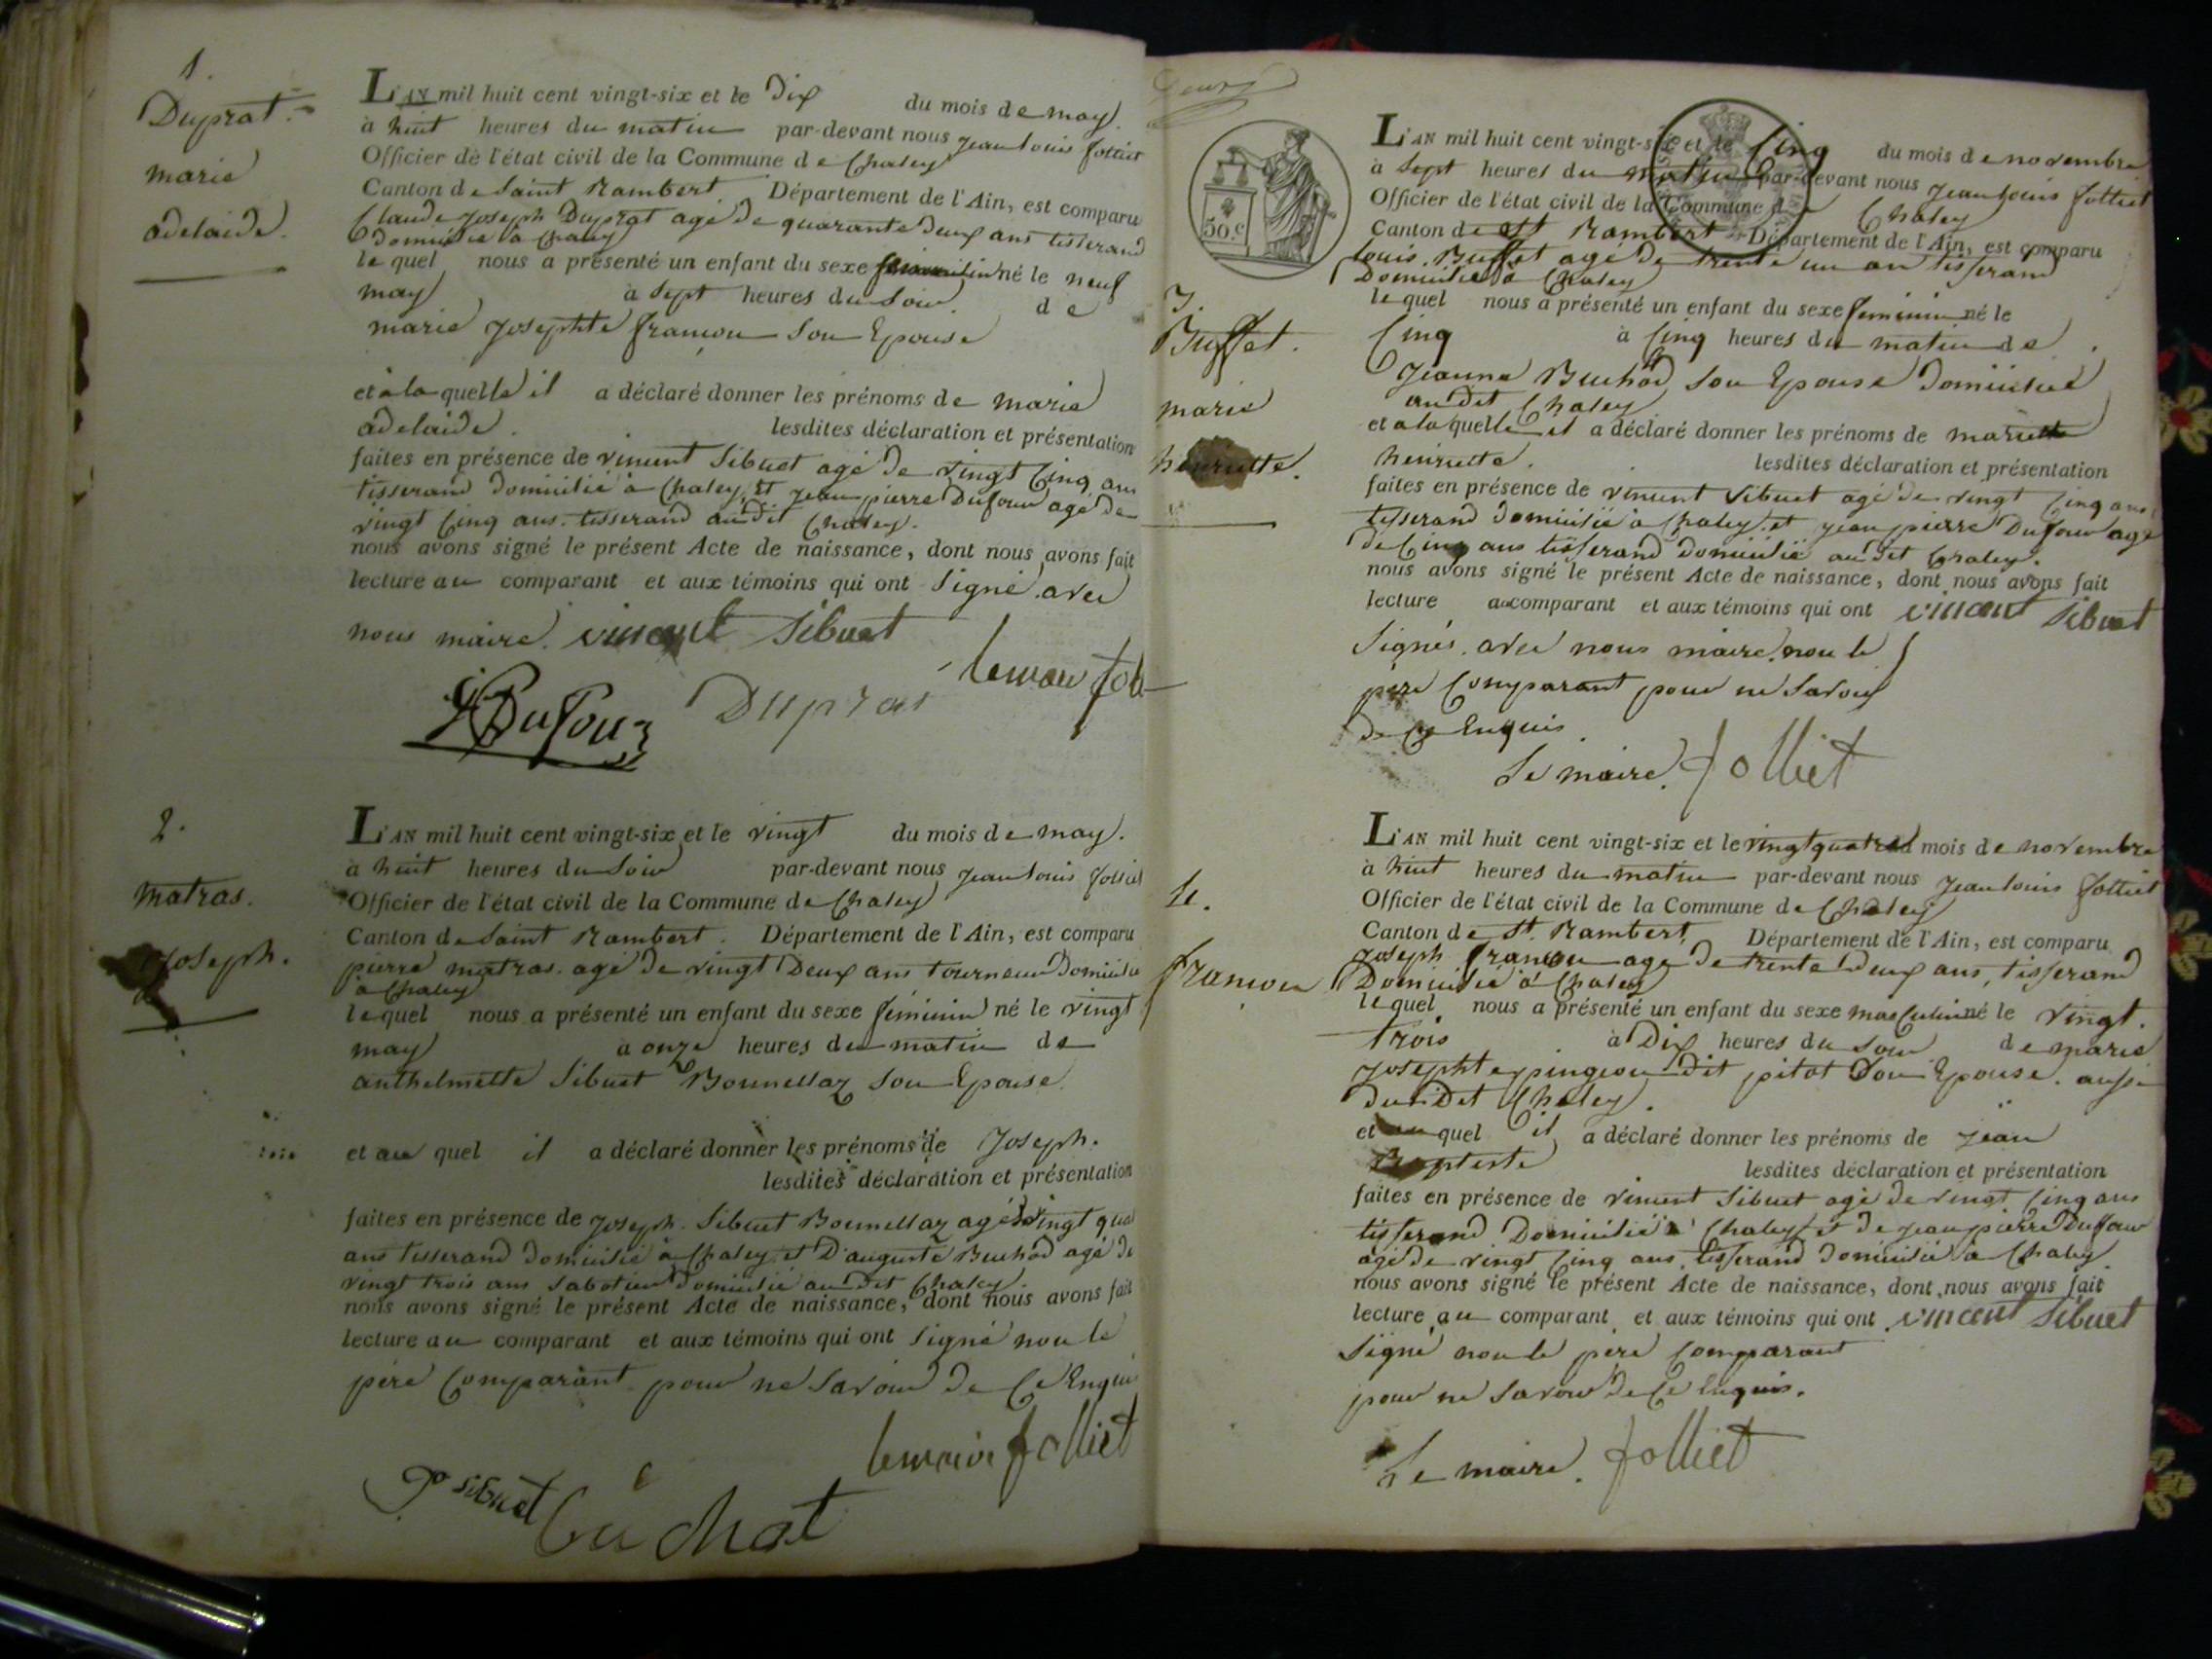 1.
Duprat.
marie
adelaide.
L'AN mil huit cent vingt-six et le Dix du mois de may
à huit heures du matin par-devant nous jean louis folliet
Officier de l'état civil de la Commune de Chaley
Canton de Saint Rambert. Département de l'Ain, est comparu
Claude joseph Duprat agé de quarante Deux ans tisserand
Domicilié à Chaley
le quel nous a présenté un enfant du sexe né le neuf
may à Sept heures du Soir de
marie josephte françon Son Epouse
et à la quelle il a déclaré donner les prénoms de marie
adelaide. lesdites déclaration et présentation
faites en présence de vincent Sibuet agé de vingt Cinq ans
tisserand Domicilié à Chaley, et jean pierre Dufour agé de
vingt Cinq ans. tisserand au dit Chaley.
nous avons signé le présent Acte de naissance, dont nous avons fait
lecture au comparant et aux témoins qui ont Signé avec
nous maire. vincent Sibuet
lemaire foll
Dufour Duprat
2.
matras.
joseph.
L'AN mil huit cent vingt-six et le vingt du mois de may.
à huit heures du Soir par-devant nous jean louis folliet
Officier de l'état civil de la Commune de Chaley
Canton de Saint Rambert. Département de l'Ain, est comparu
pierre matras. agé de vingt Deux ans tourneur Domicilié
à Chaley
le quel nous a présenté un enfant du sexe féminin né le vingt
may à onze heures du matin de
anthelmette Sibuet Bonnellaz Son Epouse.
et au quel il a déclaré donner les prénoms de Joseph.
lesdites déclaration et présentation
faites en présence de joseph. Sibuet Bonnellaz agé de vingt quat
ans tisserand Domicilié à Chaley et D'auguste Buchod agé de
vingt trois ans Sabotier Domicilié au Dit Chaley.
nous avons signé le présent Acte de naissance, dont nous avons fait
lecture au comparant et aux témoins qui ont Signé non le
père Comparant pour ne Savoir De Ce Enquis
lemaire folliet
Jo sibuet Buchat
50.c
3.
Buffet.
marie
henriette.
L'AN mil huit cent vingt-six et le Cinq du mois de novembre
à Sept heures du matin par-devant nous jean louis folliet
Officier de l'état civil de la Commune de Chaley
Canton de St Rambert Département de l'Ain, est comparu
louis Buffet agé De trente un an tisserand
Domicilié à Chaley
le quel nous a présenté un enfant du sexe feminin né le
Cinq à Cinq heures du matin de
Jeanne Buchod Son Epouse Domiciliée
au dit Chaley
et a la quelle il a déclaré donner les prénoms de
henriette. lesdites déclaration et présentation
faites en présence de vincent Sibuet agé de vingt Cinq ans
tisserand Domicilié à Chaley. et jean pierre Dufour agé
de Cinq ans tisserand Domicilié au dit Chaley.
nous avons signé le présent Acte de naissance, dont nous avons fait
lecture au comparant et aux témoins qui ont vincent Sibuet
Signés. avec nous maire. non le
père Comparant pour ne Savoir
de Ce Enquis.
Le maire. folliet
4.
françon
L'AN mil huit cent vingt-six et le vingt quatre du mois de novembre
à huit heures du matin par-devant nous jean louis folliet
Officier de l'état civil de la Commune de Chaley
Canton de St. Rambert. Département de l'Ain, est comparu
joseph françon agé De trente Deux ans, tisserand
Domicilié à Chaley
le quel nous a présenté un enfant du sexe masculin né le vingt.
trois à Dix heures du Soir de marie
josephte pingeon Dit pitot Son Epouse. aussi
du dit Chaley.
et au quel il a déclaré donner les prénoms de jean
Baptiste lesdites déclaration et présentation
faites en présence de vincent Sibuet agé de vingt Cinq ans
tisserand Domicilié à Chaley et de jean pierre Dufour
agé de vingt Cinq ans, tisserand Domicilié à Chaley.
nous avons signé le présent Acte de naissance, dont nous avons fait
lecture au comparant et aux témoins qui ont vincent Sibuet
Signé non le père Comparant
pour ne Savoir De Ce Enquis.
Le maire. folliet